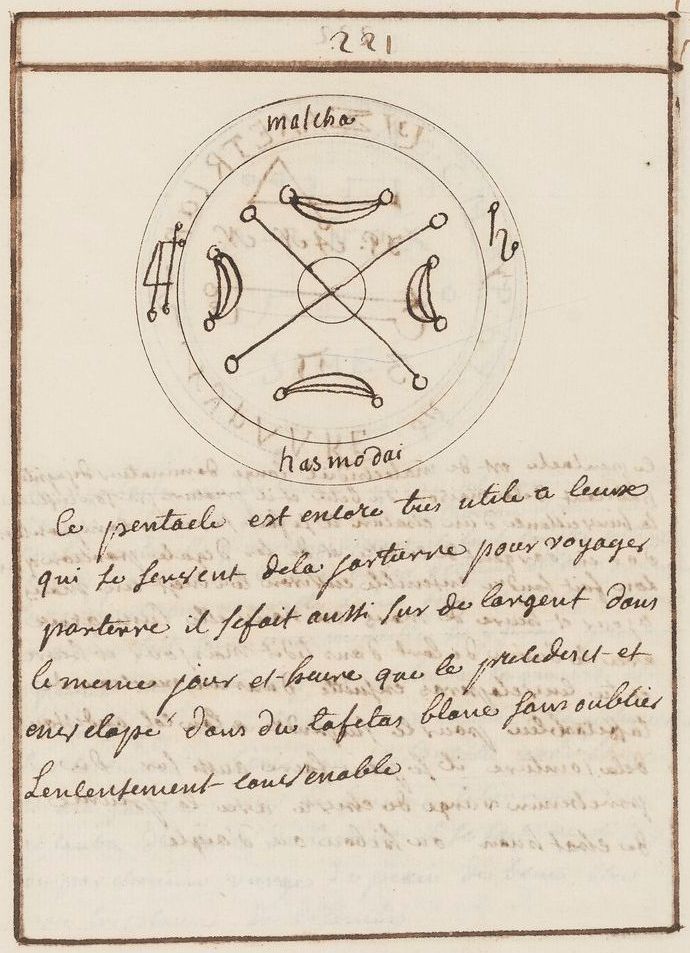 221
malcha
hasmodai
le pentacle est encore tres utile a leux
qui se servent dela jartierre pour voyager
parterre il sefait aussi sur de largent dans
le meme jour et heure que le precedent et
envelopé dans du tafetas blanc sans oublier
Lencensement convenable